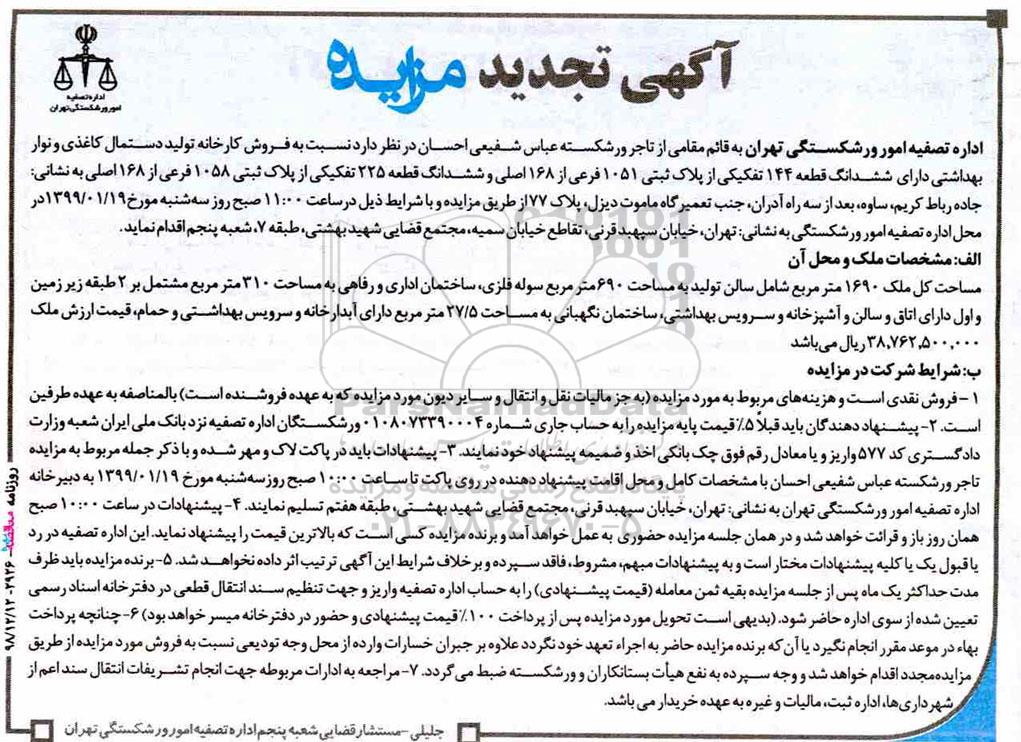 آگهی تجدید مزایده
اداره تصفیه
امور ورشکستگی تهران
اداره تصفیه امور ورشکستگی تهران به قائم مقامی از تاجر ورشکسته عباس شفیعی احسان در نظر دارد نسبت به فروش کارخانه تولید دستمال کاغذی و نوار
بهداشتی دارای ششدانگ قطعه ۱۴۴ تفکیکی از پلاک ثبتی ۱۰۵۱ فرعی از ۱۶۸ اصلی و ششدانگ قطعه ۲۲۵ تفکیکی از پلاک ثبتی ۱۰۵۸ فرعی از ۱۶۸ اصلی به نشانی:
جاده رباط کریم، ساوه، بعد از سه راه آدران، جنب تعمیرگاه ماموت دیزل، پلاک ۷۷ از طریق مزایده و با شرایط ذیل در ساعت ۱۱:۰۰ صبح روز سه‌شنبه مورخ ۱۳۹۹/۰۱/۱۹ در
محل اداره تصفیه امور ورشکستگی به نشانی: تهران، خیابان سپهبد قرنی، تقاطع خیابان سمیه، مجتمع قضایی شهید بهشتی، طبقه ۷، شعبه پنجم اقدام نماید.
الف: مشخصات ملک و محل آن
مساحت کل ملک ۱۶۹۰ متر مربع شامل سالن تولید به مساحت ۶۹۰ متر مربع سوله فلزی، ساختمان اداری و رفاهی به مساحت ۳۱۰ متر مربع مشتمل بر ۲ طبقه زیر زمین
و اول دارای اتاق و سالن و آشپزخانه و سرویس بهداشتی، ساختمان نگهبانی به مساحت ۲۷/۵ متر مربع دارای آبدارخانه و سرویس بهداشتی و حمام، قیمت ارزش ملک
۳۸,۷۶۲,۵۰۰,۰۰۰ ریال می‌باشد
ب: شرایط شرکت در مزایده
۱- فروش نقدی است و هزینه‌های مربوط به مورد مزایده (به جز مالیات نقل و انتقال و سایر دیون مورد مزایده که به عهده فروشنده است) بالمناصفه به عهده طرفین
است. ۲- پیشنهاد دهندگان باید قبلاً ۵٪ قیمت پایه مزایده را به حساب جاری شماره ۰۱۰۸۰۷۳۳۹۰۰۰۴ ورشکستگان اداره تصفیه نزد بانک ملی ایران شعبه وزارت
دادگستری کد ۵۷۷ واریز و یا معادل رقم فوق چک بانکی اخذ و ضمیمه پیشنهاد خود نمایند. ۳- پیشنهادات باید در پاکت لاک و مهر شده و با ذکر جمله مربوط به مزایده
تاجر ورشکسته عباس شفیعی احسان با مشخصات کامل و محل اقامت پیشنهاد دهنده در روی پاکت تا ساعت ۱۰:۰۰ صبح روز سه‌شنبه مورخ ۱۳۹۹/۰۱/۱۹ به دبیرخانه
اداره تصفیه امور ورشکستگی تهران به نشانی: تهران، خیابان سپهبد قرنی، مجتمع قضایی شهید بهشتی، طبقه هفتم تسلیم نمایند. ۴- پیشنهادات در ساعت ۱۰:۰۰ صبح
همان روز باز و قرائت خواهد شد و در همان جلسه مزایده حضوری به عمل خواهد آمد و برنده مزایده کسی است که بالاترین قیمت را پیشنهاد نماید. این اداره تصفیه در رد
یا قبول یک یا کلیه پیشنهادات مختار است و به پیشنهادات مبهم، مشروط، فاقد سپرده و برخلاف شرایط این آگهی ترتیب اثر داده نخواهد شد. ۵- برنده مزایده باید ظرف
مدت حداکثر یک ماه پس از جلسه مزایده بقیه ثمن معامله (قیمت پیشنهادی) را به حساب اداره تصفیه واریز و جهت تنظیم سند انتقال قطعی در دفترخانه اسناد رسمی
تعیین شده از سوی اداره حاضر شود. (بدیهی است تحویل مورد مزایده پس از پرداخت ۱۰۰٪ قیمت پیشنهادی و حضور در دفترخانه میسر خواهد بود) ۶- چنانچه پرداخت
بهاء در موعد مقرر انجام نگیرد یا آن که برنده مزایده حاضر به اجراء تعهد خود نگردد علاوه بر جبران خسارات وارده از محل وجه تودیعی نسبت به فروش مورد مزایده از طریق
مزایده مجدد اقدام خواهد شد و وجه سپرده به نفع هیأت بستانکاران و ورشکسته ضبط می گردد. ۷- مراجعه به ادارات مربوطه جهت انجام تشریفات انتقال سند اعم از
شهرداری‌ها، اداره ثبت، مالیات و غیره به عهده خریدار می باشد.
جلیلی - مستشار قضایی شعبه پنجم اداره تصفیه امور ورشکستگی تهران
ParsNamadData
پایگاه اطلاع رسانی مناقصه و مزایده
۰۲۱-۸۸۳۴۹۶۷۰-۵
روزنامه مناقصه - ۲۹۲۶ - ۹۸/۱۲/۱۲